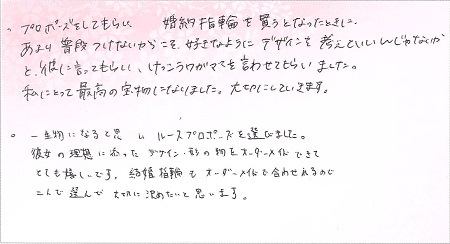 。プロポーズをしてもらい 婚約指輪を買うとなったときに、
あまり普段つけないからこそ、好きなようにデザインを考えていいんじゃないか
と、彼に言ってもらい、けっこうワガママを言わせてもらいました。
私にとって最高の宝物になりました。大切にしていきます。
。一生物になると思い ルースプロポーズを選びました。
彼女の理想に添ったデザイン・形の物をオーダーメイドできて
とても嬉しいです。結婚指輪もオーダーメイドで合わせれるので
こんで選んで 大切に決めたいと思います。